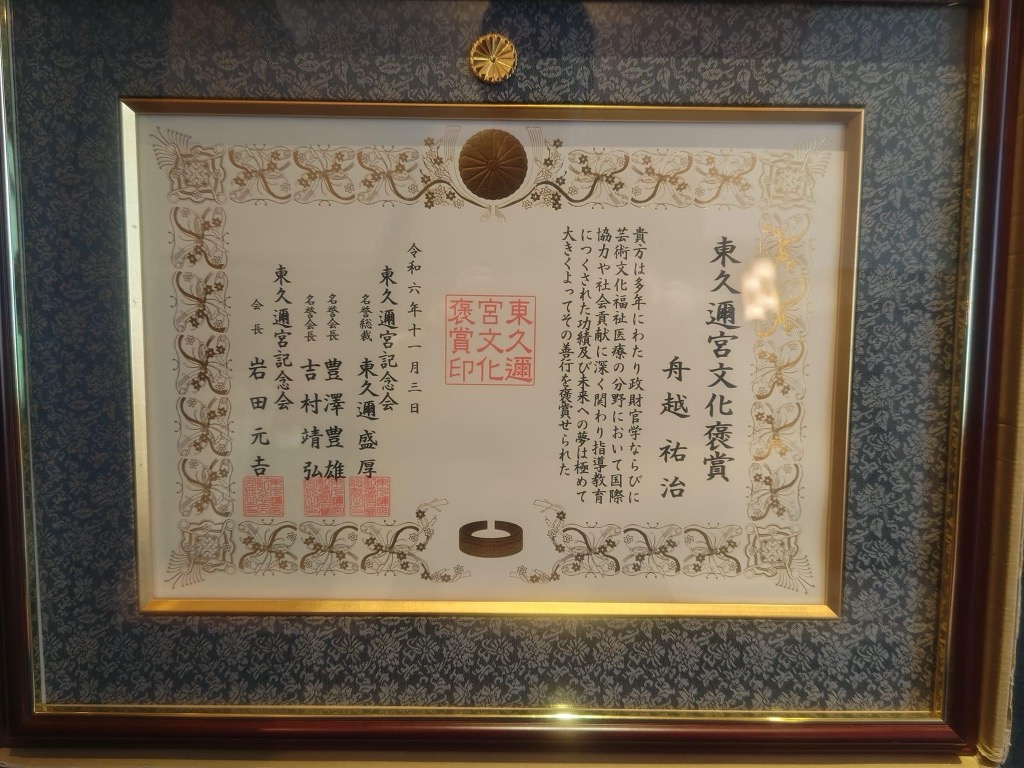 東久邇宮文化褒賞
舟越祐治
貴方は多年にわたり政財官学ならびに
芸術文化福祉医療の分野において国際
協力や社会貢献に深く関わり指導教育
につくされた功績及び未来への夢は極めて
大きくよってその善行を褒賞せられた
東久邇
宮文化
褒賞印
令和六年十一月三日
東久邇宮記念会
名誉総裁 東久邇盛厚
名誉会長 豊澤豊雄
名誉会長 吉村靖弘
東久邇宮記念会
会長 岩田元吉